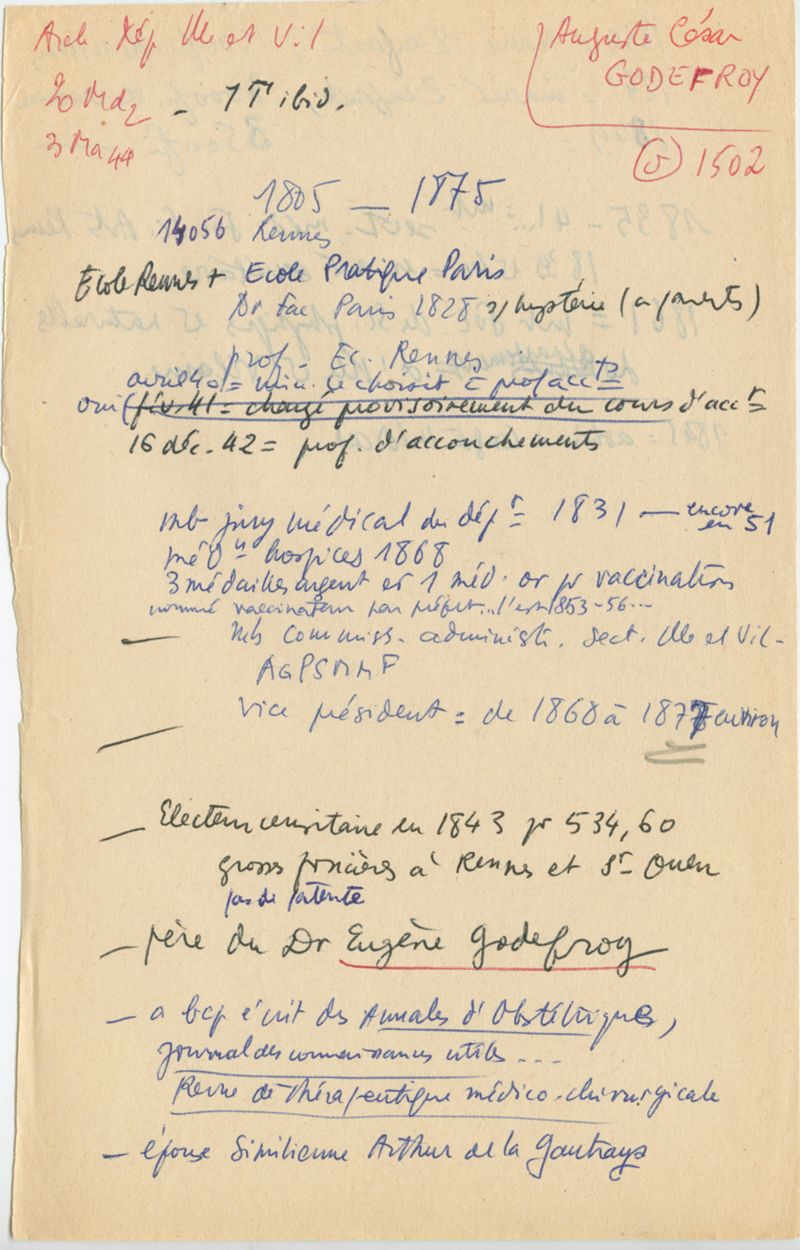 Arch Dép Ille et Vil
Auguste César
GODEFROY
20 Md2 - 1T ibid.
3 Ma 44
1502
1805 — 1875
14056 Rennes
Ecole Rennes + Ecole Pratique Paris
Dr Fac Paris 1828 s/ hystérie (a parents)
prof. Ec. Rennes
avril 40 = min. le choisit c prof acct
oui (fév. 41 = chargé provisoirement du cours d'acct
16 déc. 42 = prof. d'accouchements
mb jury médical du dépt = 1831 — encore
en 51
méd hospices 1868
3 médailles argent et 1 méd. or pr vaccination
nommé vaccinateur par préfet.. l'est 1853-56...
— Mb Commiss. administr. sect. Ille et Vil-
AGPSMMF
— Vice président = de 1868 à 1877 environ
— Electeur censitaire en 1843 pr 534,60
grosses foncières à Rennes et St Ouen
pas de patente
— père du Dr Eugène Godefroy
— a bcp écrit ds Annales d'Obstétriques,
Journal des connaissances utiles...
Revue de Thérapeutique médico-chirurgicale
— épouse Similienne Arthur de la Gautrays